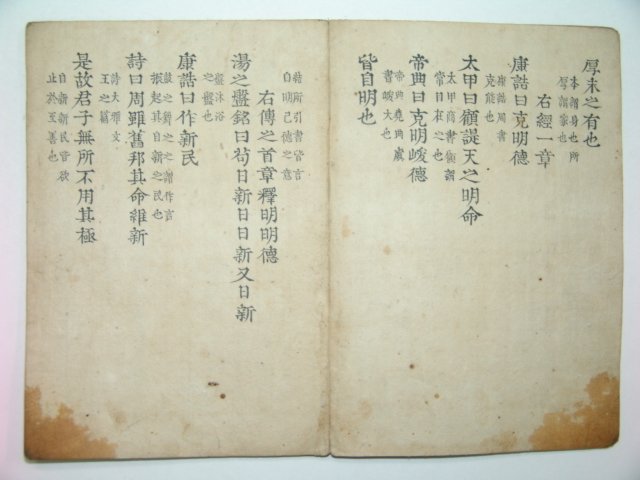 厚未之有也
本謂身也所
厚謂家也
右經一章
康誥曰克明德
康誥周書
克能也
太甲曰顧諟天之明命
太甲商書顧謂
常目在之也
帝典曰克明峻德
帝典堯典虞
書峻大也
皆自明也
結所引書皆言
自明己德之意
右傳之首章釋明明德
湯之盤銘曰苟日新日日新又日新
盤沐浴
之盤也
康誥曰作新民
鼓之舞之之謂作言
振起其自新之民也
詩曰周雖舊邦其命維新
詩大雅文
王之篇
是故君子無所不用其極
自新新民皆欲
止於至善也